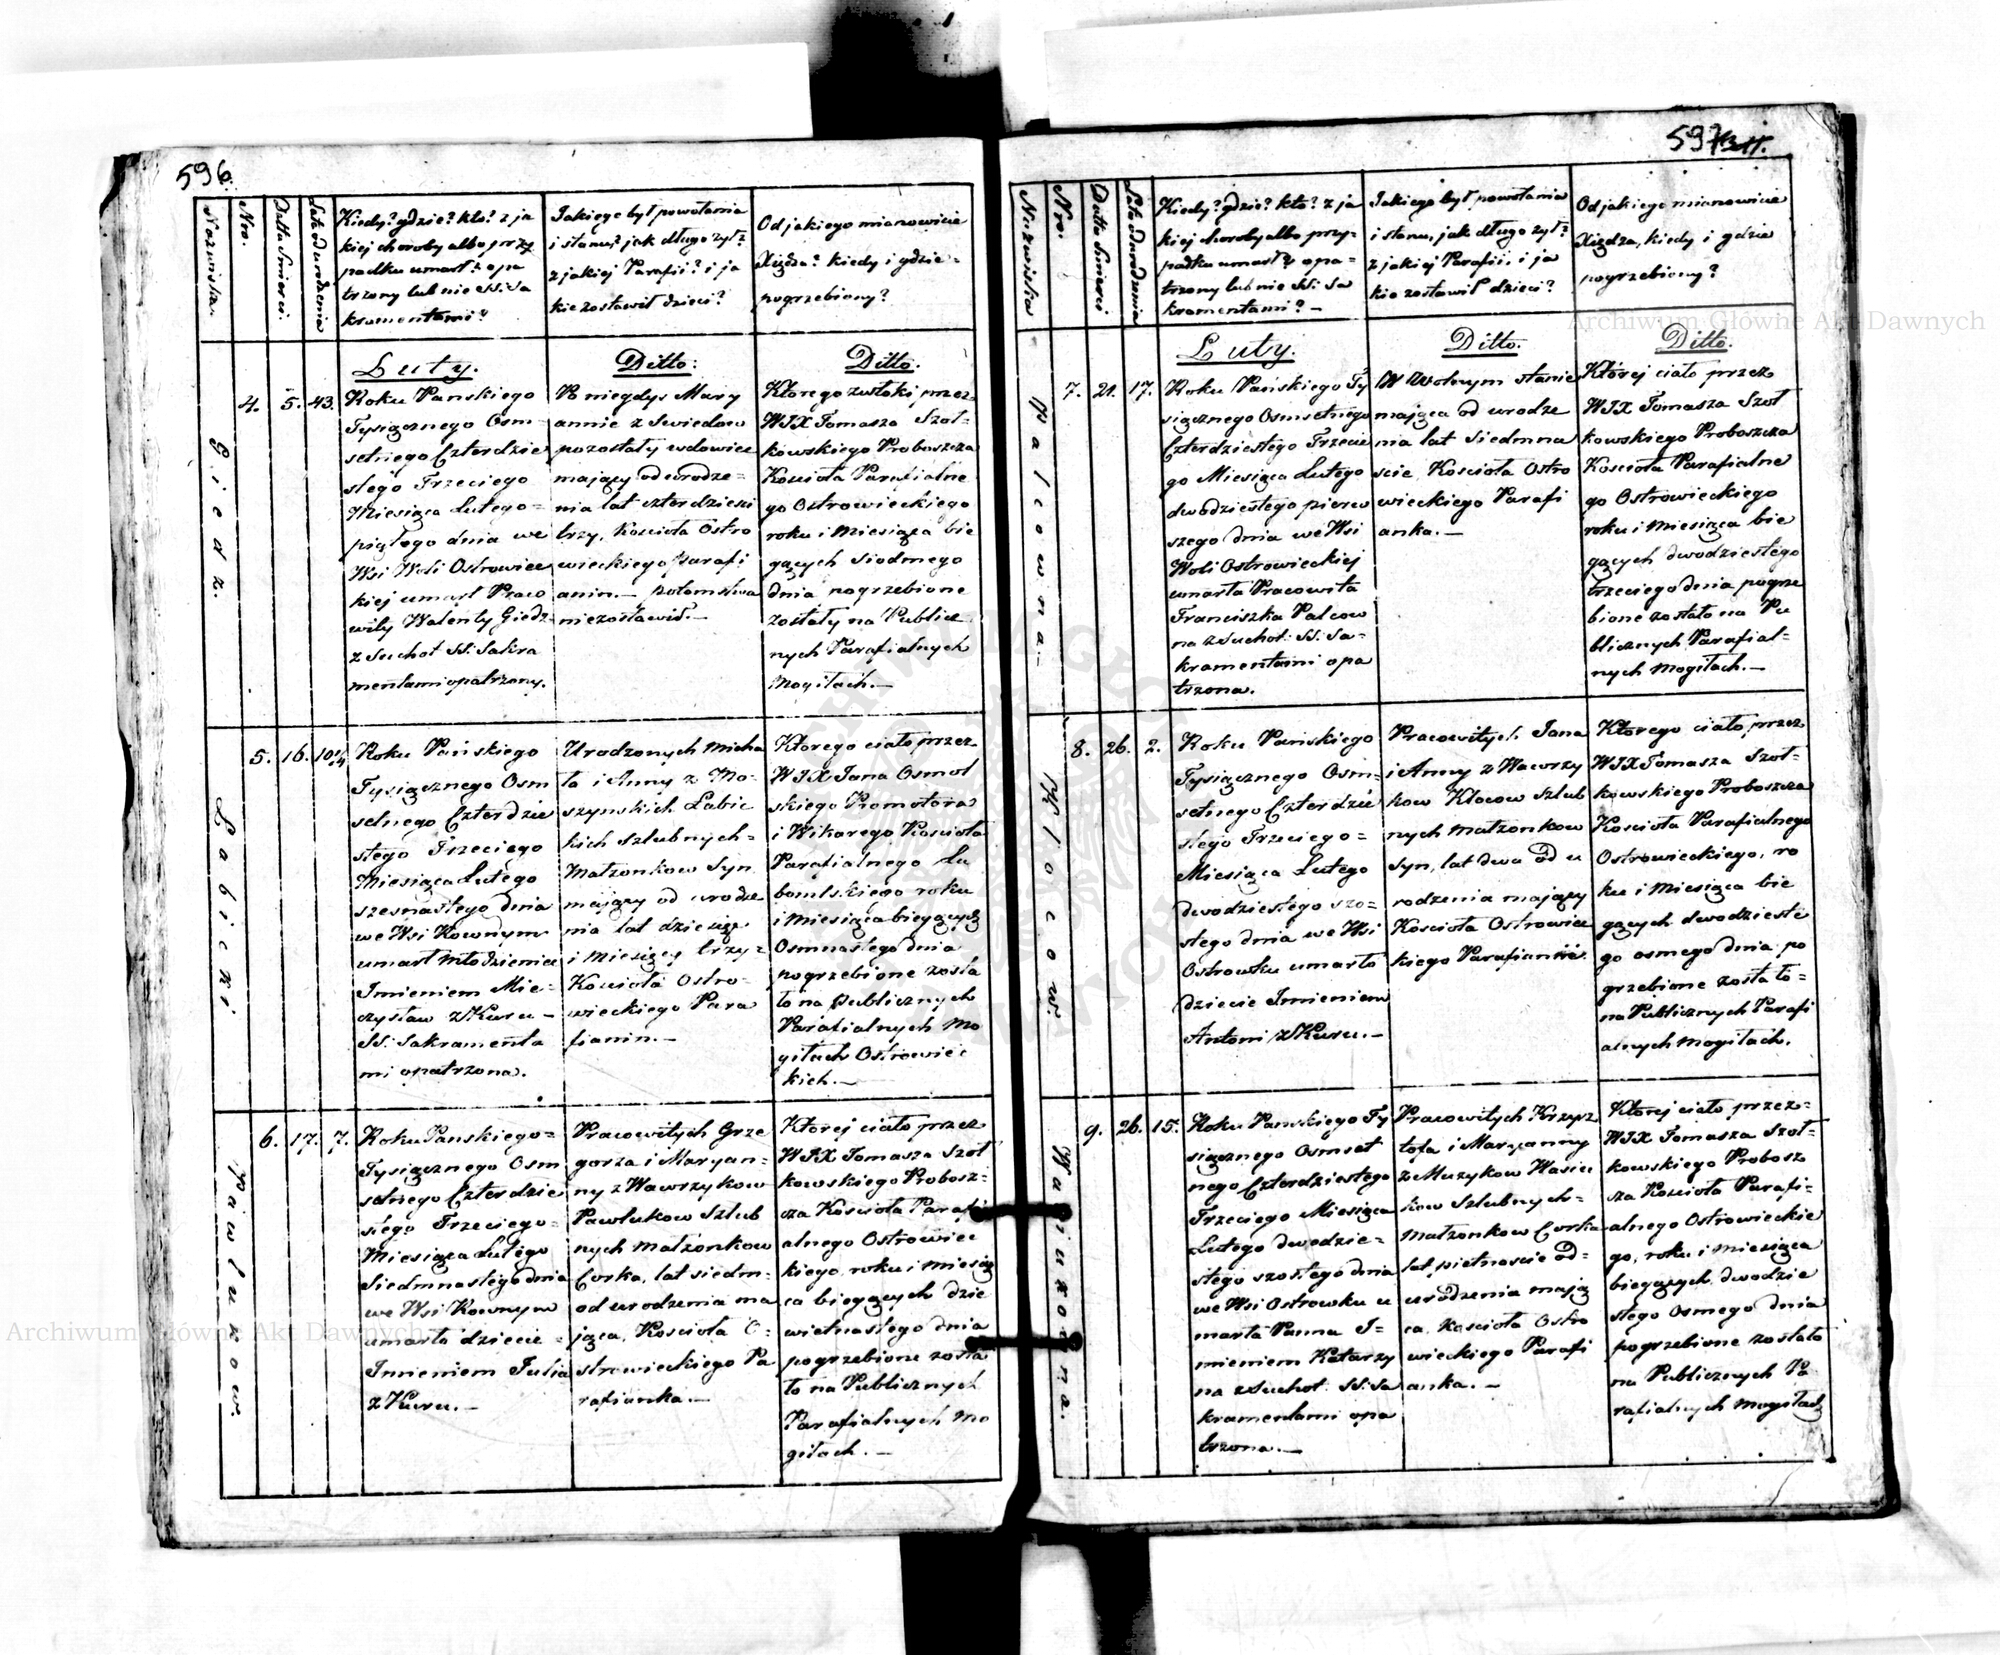 596.
Nazwiska.
Nro.
Datta Smierci.
Lata od urodzenia
Kiedy? gdzie? kto? z ja
kiej choroby albo przy
padku umarł? opa
trzony lub nie SS: Sa
kramentami?
Jakiego był powołania
i stanu? jak długo żył?
z jakiej Parafii? i ja
kie zostawił dzieci?
Od jakiego mianowicie
Xiędza? kiedy i gdzie=
pogrzebiony?
Luty.
Ditto:
Ditto.
Giedz.
4.
5.
43.
Roku Panskiego
Tysiącznego Osm=
setnego Czterdzie
stego Trzeciego
Miesiąca Lutego=
piątego dnia we
Wsi Woli Ostrowiec
kiej umarł Praco
wity Walenty Giedz
z Suchot SS: Sakra
mentami opatrzony.
Po niegdys Mary
annie z Swiedow
pozostały wdowiec
mający od urodze=
nia lat czterdziesci
trzy, Kościoła Ostro
wieckiego Parafi
anin. — potomstwa
niezostawił. —
Ktorego zwłoki przez
WJX Tomasza Szoł=
kowskiego Proboszcza
Kościoła Parafialne
go Ostrowieckiego
roku i Miesiąca bie
gących Siodmego
dnia pogrzebione
zostały na Publicz
nych Parafialnych
Mogiłach. —
Łabicki
5.
16.
10¼
Roku Pańskiego
Tysiącznego Osm
setnego Czterdzie
stego Trzeciego
Miesiąca Lutego
szesnastego dnia
we Wsi Kownym
umarł Młodzieniec
Imieniem Mie=
czysław z Kuru —
SS: Sakramenta
mi opatrzona.
Urodzonych Micha
ła i Anny z Mo=
szynskich Łabic
kich Szlubnych=
Małzonkow Syn
mający od urodze
nia lat dziesięc
i Miesięcy trzy=
Kościoła Ostro=
wieckiego Para
fianin. —
Ktorego ciało przez
WJX Jana Osmol
skiego Promotora
i Wikarego Kościoła
Parafialnego Lu
bomlskiego roku
i Miesiąca biegących
Osmnastego dnia
pogrzebione zosta
ło na publicznych
Parafialnych Mo
giłach Ostrowiec
kich. —
Pawlukow.
6.
17.
7.
Roku Panskiego=
Tysiącznego Osm
setnego Czterdzie
stego Trzeciego=
Miesiąca Lutego
Siedmnastego dnia
we Wsi Kownym
umarło dziecie=
Imieniem Julia
z Kuru. —
Pracowitych Grze
gorza i Maryan=
ny z Wawrzykow
Pawlukow Szlub
nych Małżonkow
Corka, lat siedm=
od urodzenia ma
jąca, Kościoła O=
strowieckiego Pa
rafianka. —
Ktorej ciało przez
WJX Tomasza Szoł
kowskiego Probosz=
cza Kościoła Parafi
alnego Ostrowiec
kiego, roku i Miesią
ca biegących dzie
wietnastego dnia
pogrzebione zosta
ło na Publicznych
Parafialnych Mo
giłach. —
597
Nazwiska
Nro.
Datta Smierci
Lata od urodzenia
Kiedy? gdzie? kto? z ja
kiej choroby albo przy=
padku umarł? opa=
trzony lub nie SS: Sa
kramentami? —
Jakiego był powołania
i stanu, jak długo żył?
z jakiej Parafii, i ja
kie zostawił dzieci?
Od jakiego mianowicie
Xiędza, kiedy i gdzie
pogrzebiony?
Luty.
Ditto.
Ditto.
Palcowna. —
7.
21.
17.
Roku Pańskiego Ty
siącznego Osmsetnego
Czterdziestego Trzecie
go Miesiąca Lutego
dwódziestego pierw
szego dnia we Wsi
Woli Ostrowieckiej
umarła Pracowita
Franciszka Palcow
na z Suchot: SS: Sa=
kramentami opa
trzona.
W Wolnym stanie
mająca od urodze
nia lat Siedmna
scie, Kościoła Ostro
wieckiego Parafi
anka. —
Której ciało przez
WJX Tomasza Szoł
kowskiego Proboszcza
Kościoła Parafialne
go Ostrowieckiego
roku i Miesiąca bie
gących dwodziestego
trzeciego dnia pogrze
bione zostało na Pu
blicznych Parafial=
nych Mogiłach. —
8.
26.
2.
Roku Pańskiego
Tysiącznego Osm=
setnego Czterdzie
stego Trzeciego=
Miesiąca Lutego
dwodziestego szo=
stego dnia we Wsi
Ostrowku umarło
dziecie Imieniem
Antoni z Kuru. —
Pracowitych Jana
i Anny z Wawrzy
kow Kłocow Szlub
nych Małzonkow
Syn, lat dwa od u
rodzenia mający
Kościoła Ostrowiec
kiego Parafianin.
Ktorego ciało przez
WJX Tomasza Szoł=
kowskiego Proboszcza
Kościoła Parafialnego
Ostrowieckiego, ro
ku i Miesiąca bie
gących dwodzieste
go osmego dnia po
grzebione zostało=
na Publicznych Parafi
alnych Mogiłach.
9.
26.
15.
Roku Panskiego Ty
siącznego Osmset
nego Czterdziestego
Trzeciego Miesiąca
Lutego dwodzie=
stego szostego dnia
we Wsi Ostrowku u
marła Panna I=
mieniem Katarzy
na z Suchot: SS: Sa
kramentami opa
trzona. —
Pracowitych Krzysz
tofa i Maryanny
z Muzykow Wasiu
kow Szlubnych=
Małzonkow Corka
lat pietnascie od=
urodzenia mają
ca, Kościoła Ostro
wieckiego Parafi
anka. —
Ktorej ciało przez=
WJX Tomasza Szoł=
kowskiego Probosz
cza Kościoła Parafi=
alnego Ostrowieckie
go, roku i Miesiąca
biegących, dwodzie
stego Osmego dnia
pogrzebione zostało
na Publicznych Pa
rafialnych Mogiłach
Archiwum Główne Akt Dawnych
Archiwum Główne Akt Dawnych